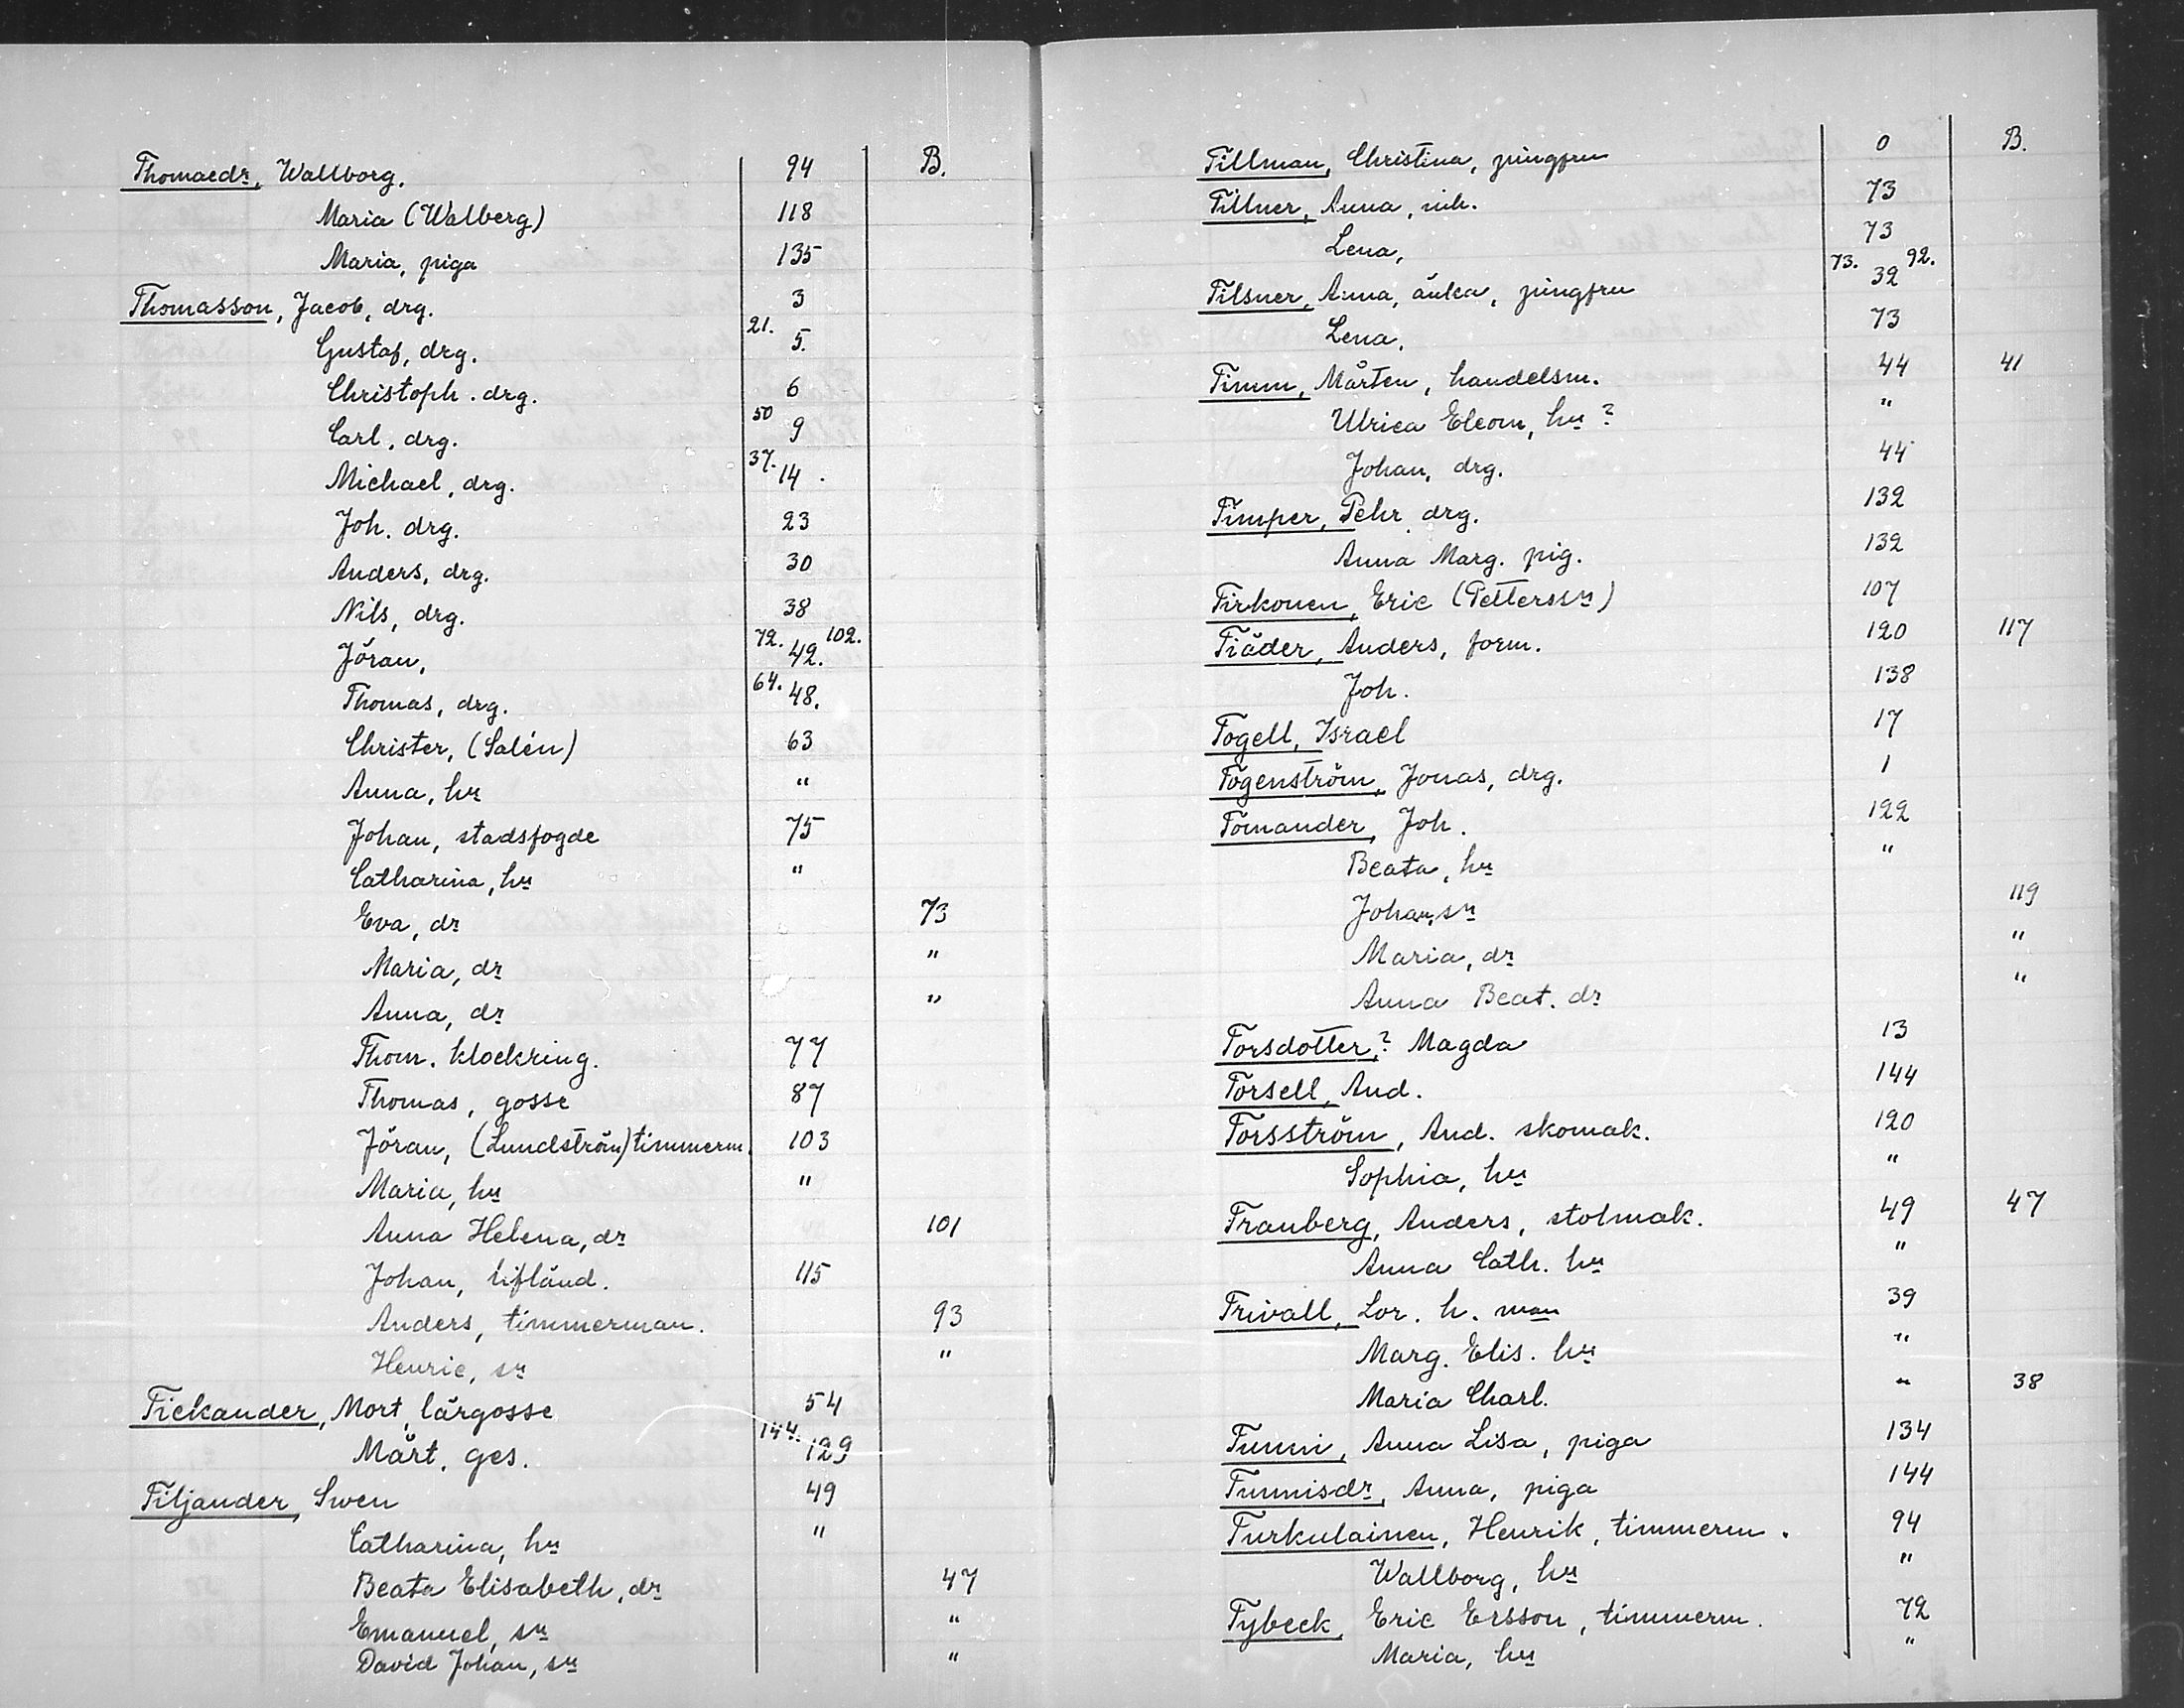 Thomaedr, Wallborg. 94 B.
Maria (Walberg) 118
Maria, piga 135
Thomasson, Jacob, drg. 3
Gustaf, drg. 21. 5.
Christoph. drg. 6
Carl, drg. 50 9
Michael, drg. 37. 14.
Joh. drg. 23
Anders, drg. 30
Nils, drg. 38
Jöran, 72. 42. 102.
Thomas, drg. 64. 48.
Christer, (Salén) 63
Anna, hu "
Johan, stadsfogde 75
Catharina, hu "
Eva, dr 73
Maria, dr "
Anna, dr "
Thom. klockring. 77
Thomas, gosse 87
Jöran, (Lundström) timmerm. 103
Maria, hu "
Anna Helena, dr 101
Johan, lifländ. 115
Anders, timmerman. 93
Henric, sn "
Tickander, Mort, lärgosse 54
Märt, ges. 144. 129
Tiljander, Swen 49
Catharina, hu "
Beata Elisabeth, dr 47
Emanuel, sn "
David Johan, sn "
Tillman, Christina, jungfru 0 B.
Tillner, Anna, inh. 73
Lena, 73
Tilsner, Anna, änka, jungfru 73. 32 92.
Lena, 73
Timm, Mårten, handelsm. 44 41
Ulrica Eleom, hu? "
Johan, drg. 44
Timper, Pehr drg. 132
Anna Marg. pig. 132
Tirkonen, Eric (Petterssn) 107
Tiäder, Anders, form. 120 117
Joh. 138
Togell, Israel 17
Togenström, Jonas, drg. 1
Tomander, Joh. 122
Beata, hu "
Johan, sn 119
Maria, dr "
Anna Beat. dr "
Torsdotter,? Magda 13
Torsell, And. 144
Torsström, And. skomak. 120
Sophia, hu "
Tranberg, Anders, stolmak. 49 47
Anna Cath. hu "
Trivall, Lor. h. man 39
Marg. Elis. hu "
Maria Charl. " 38
Tunni, Anna Lisa, piga 134
Tunnisdr, Anna, piga 144
Turkulainen, Henrik, timmerm. 94
Wallborg, hu "
Tybeck, Eric Ersson, timmerm. 72
Maria, hu "